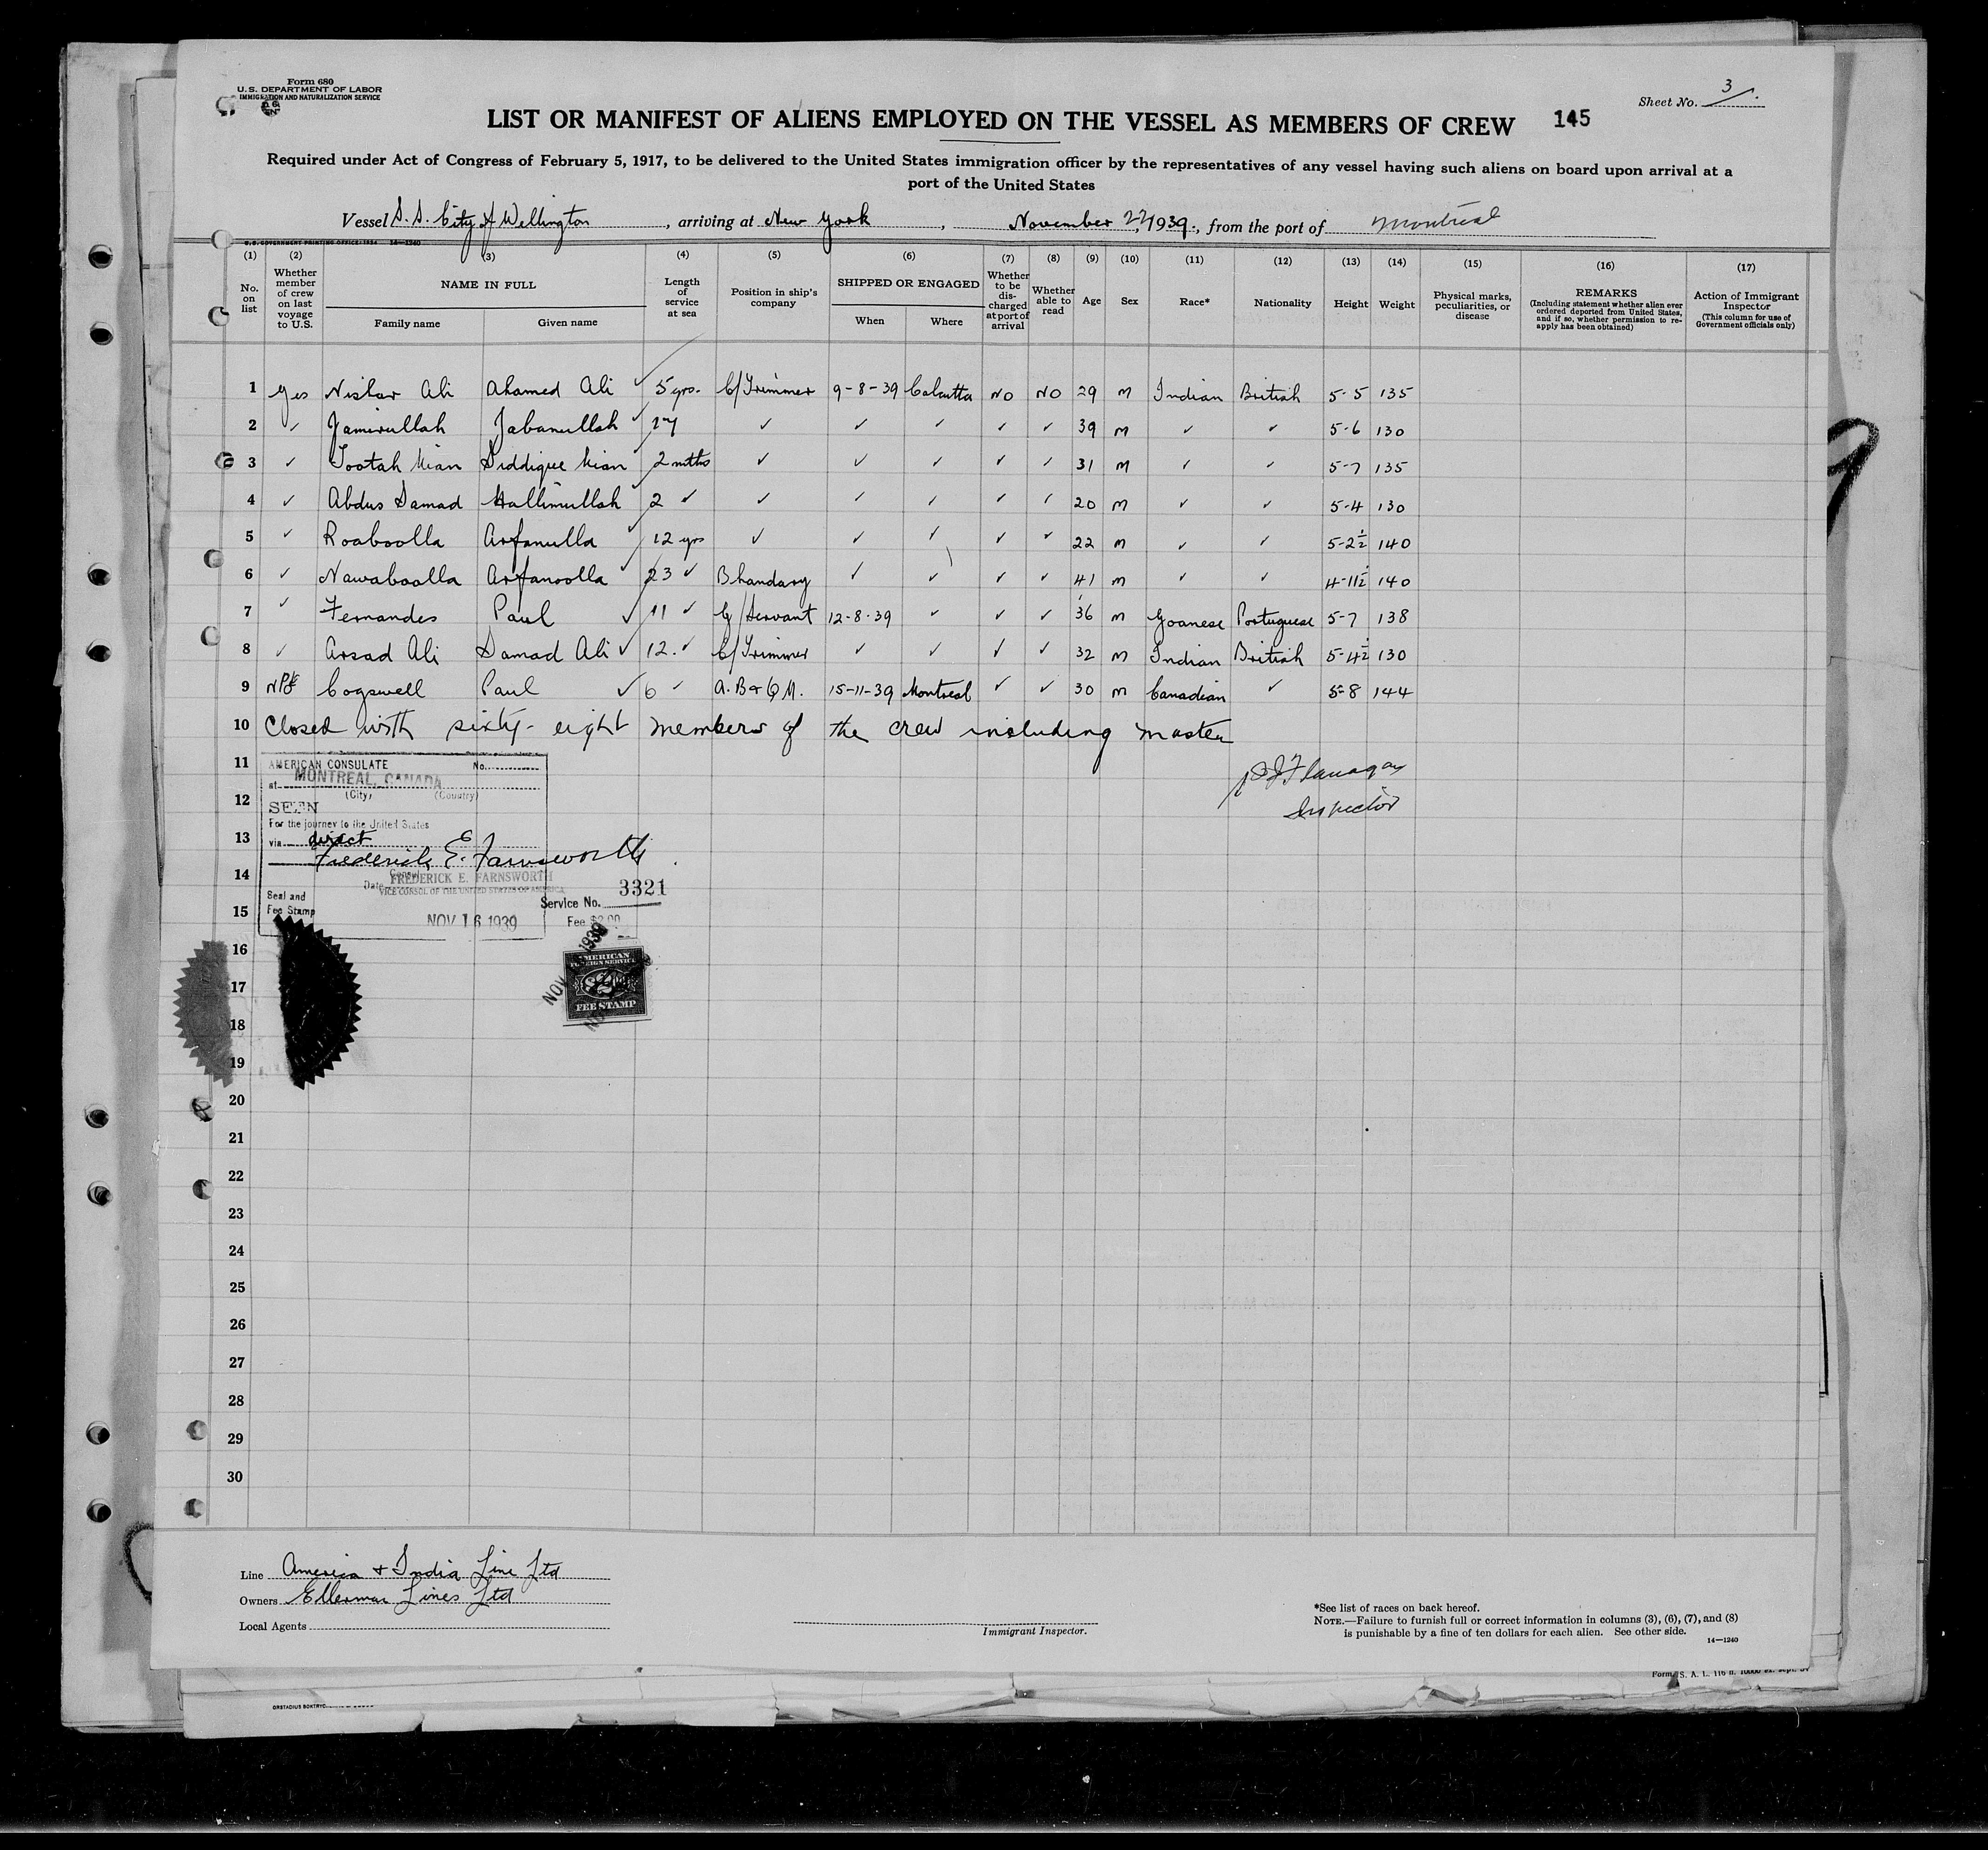 Form 680
U.S. DEPARTMENT OF LABOR
IMMIGRATION AND NATURALIZATION SERVICE
Sheet No. 3
LIST OR MANIFEST OF ALIENS EMPLOYED ON THE VESSEL AS MEMBERS OF CREW 145
Required under Act of Congress of February 5, 1917, to be delivered to the United States immigration officer by the representatives of any vessel having such aliens on board upon arrival at a
port of the United States
Vessel S.S. City of Wellington, arriving at New York, November 22, 1939, from the port of Montreal
U.S. GOVERNMENT PRINTING OFFICE: 1934 14—1240
(1) No. on list
(2) Whether member of crew on last voyage to U.S.
(3) NAME IN FULL Family name Given name
(4) Length of service at sea
(5) Position in ship's company
(6) SHIPPED OR ENGAGED When Where
(7) Whether to be discharged at port of arrival
(8) Whether able to read
(9) Age
(10) Sex
(11) Race*
(12) Nationality
(13) Height
(14) Weight
(15) Physical marks, peculiarities, or disease
(16) REMARKS (Including statement whether alien ever ordered deported from United States, and if so, whether permission to reapply has been obtained)
(17) Action of Immigrant Inspector (This column for use of Government officials only)
1 Yes Nishar Ali Ahamed Ali ✓ 5 yrs. C/Trimmer 9-8-39 Calcutta NO NO 29 M Indian British 5-5 135
2 ✓ Jamirullah Jabanullah ✓ 17 ✓ ✓ ✓ ✓ ✓ 39 M ✓ ✓ 5-6 130
3 ✓ Tootah Mian Siddique Mian ✓ 2 mths ✓ ✓ ✓ ✓ ✓ 31 M ✓ ✓ 5-7 135
4 ✓ Abdus Samad Hallimullah ✓ 2 ✓ ✓ ✓ ✓ ✓ ✓ 20 M ✓ ✓ 5-4 130
5 ✓ Roaboolla Arfanulla ✓ 12 yrs ✓ ✓ ✓ ✓ ✓ 22 M ✓ ✓ 5-2½ 140
6 ✓ Nawaboolla Arfanoolla ✓ 23 ✓ Bhandary ✓ ✓ ✓ ✓ 41 M ✓ ✓ 4-11½ 140
7 ✓ Fernandes Paul ✓ 11 ✓ G/Servant 12-8-39 ✓ ✓ ✓ 36 M Goanese Portuguese 5-7 138
8 ✓ Arsad Ali Samad Ali ✓ 12. ✓ C/Trimmer ✓ ✓ ✓ ✓ 32 M Indian British 5-4½ 130
9 Cogswell Paul ✓ 6 ✓ A.B & Q.M. 15-11-39 Montreal ✓ ✓ 30 M Canadian ✓ 5-8 144
10 Closed with sixty-eight members of the crew including master
11
Flanagan
Inspector
AMERICAN CONSULATE No.
at MONTREAL, CANADA
(City) (Country)
SEEN
For the journey to the United States
via direct
Frederick E. Farnsworth
FREDERICK E. FARNSWORTH
Date
VICE CONSUL OF THE UNITED STATES OF AMERICA
Seal and
Fee Stamp
NOV 16 1939
Service No. 3321
Fee $2.00
AMERICAN
FOREIGN SERVICE
$2
FEE STAMP
NOV 1939
12
13
14
15
16
17
18
19
20
21
22
23
24
25
26
27
28
29
30
Line America & India Line Ltd
Owners Ellerman Lines Ltd
Local Agents
Immigrant Inspector.
*See list of races on back hereof.
NOTE.—Failure to furnish full or correct information in columns (3), (6), (7), and (8)
is punishable by a fine of ten dollars for each alien. See other side.
14—1240